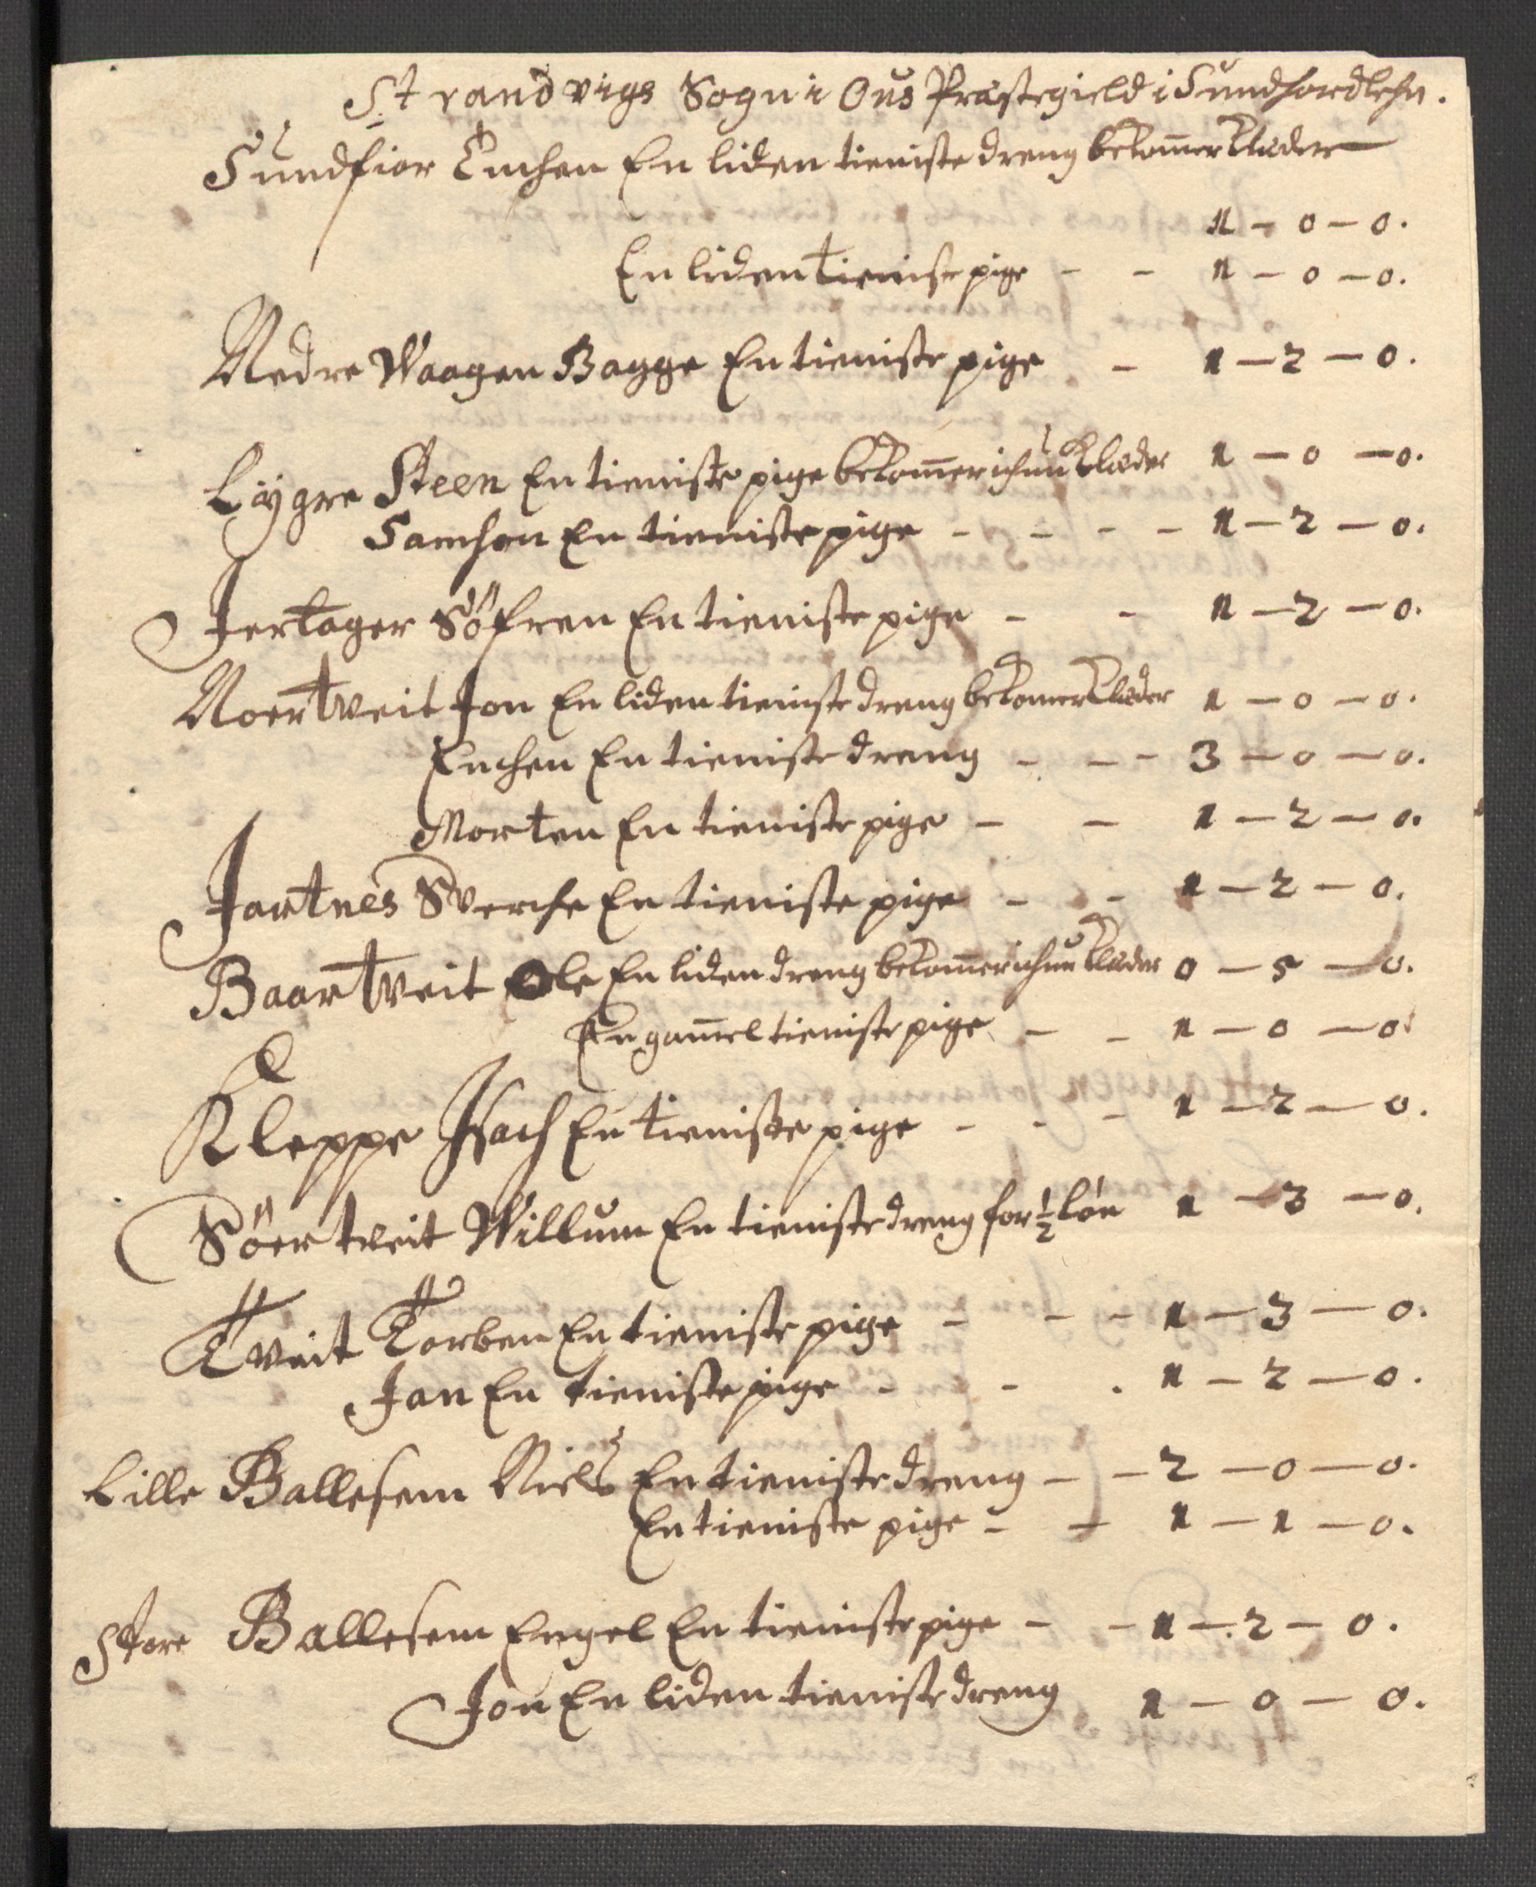 Strandvigs Sogn i Ous Præstegield i Sundhordlehn.
Sundfior Enchen En liden tieniste dreng bekom̄er Klæder
1 – 0 – 0.
En liden tieniste pige – – 1 – 0 – 0.
Nedre Waagen Bagge En tieniste pige – 1 – 2 – 0.
Lygre Steen En tieniste pige bekom̄er ichun Klæder 1 – 0 – 0.
Samson En tieniste pige – – – – 1 – 2 – 0.
Jertager Söfren En tieniste pige – – 1 – 2 – 0.
Noertveit Jon En liden tieniste dreng bekomer Klæder 1 – 0 – 0.
Enchen En tieniste dreng – – – 3 – 0 – 0.
Morten En tieniste pige – – 1 – 2 – 0.
Jartnes Sverche En tieniste pige – – 1 – 2 – 0.
Baartveit Ole En liden dreng bekom̄er ichun Klæder 0 – 5 – 0.
En gam̄el tieniste pige – – 1 – 0 – 0.
Kleppe Isach En tieniste pige – – – 1 – 2 – 0.
Söertveit Willum En tieniste dreng for ½ lön 1 – 3 – 0.
Tveit Torben En tieniste pige – – – 1 – 3 – 0.
Jan En tieniste pige – – . 1 – 2 – 0.
Lille Ballesem Niels En tieniste dreng – – 2 – 0 – 0.
En tieniste pige – – 1 – 1 – 0.
Store Ballesem Engel En tieniste pige – – 1 – 2 – 0.
Jon En liden tieniste dreng 1 – 0 – 0.